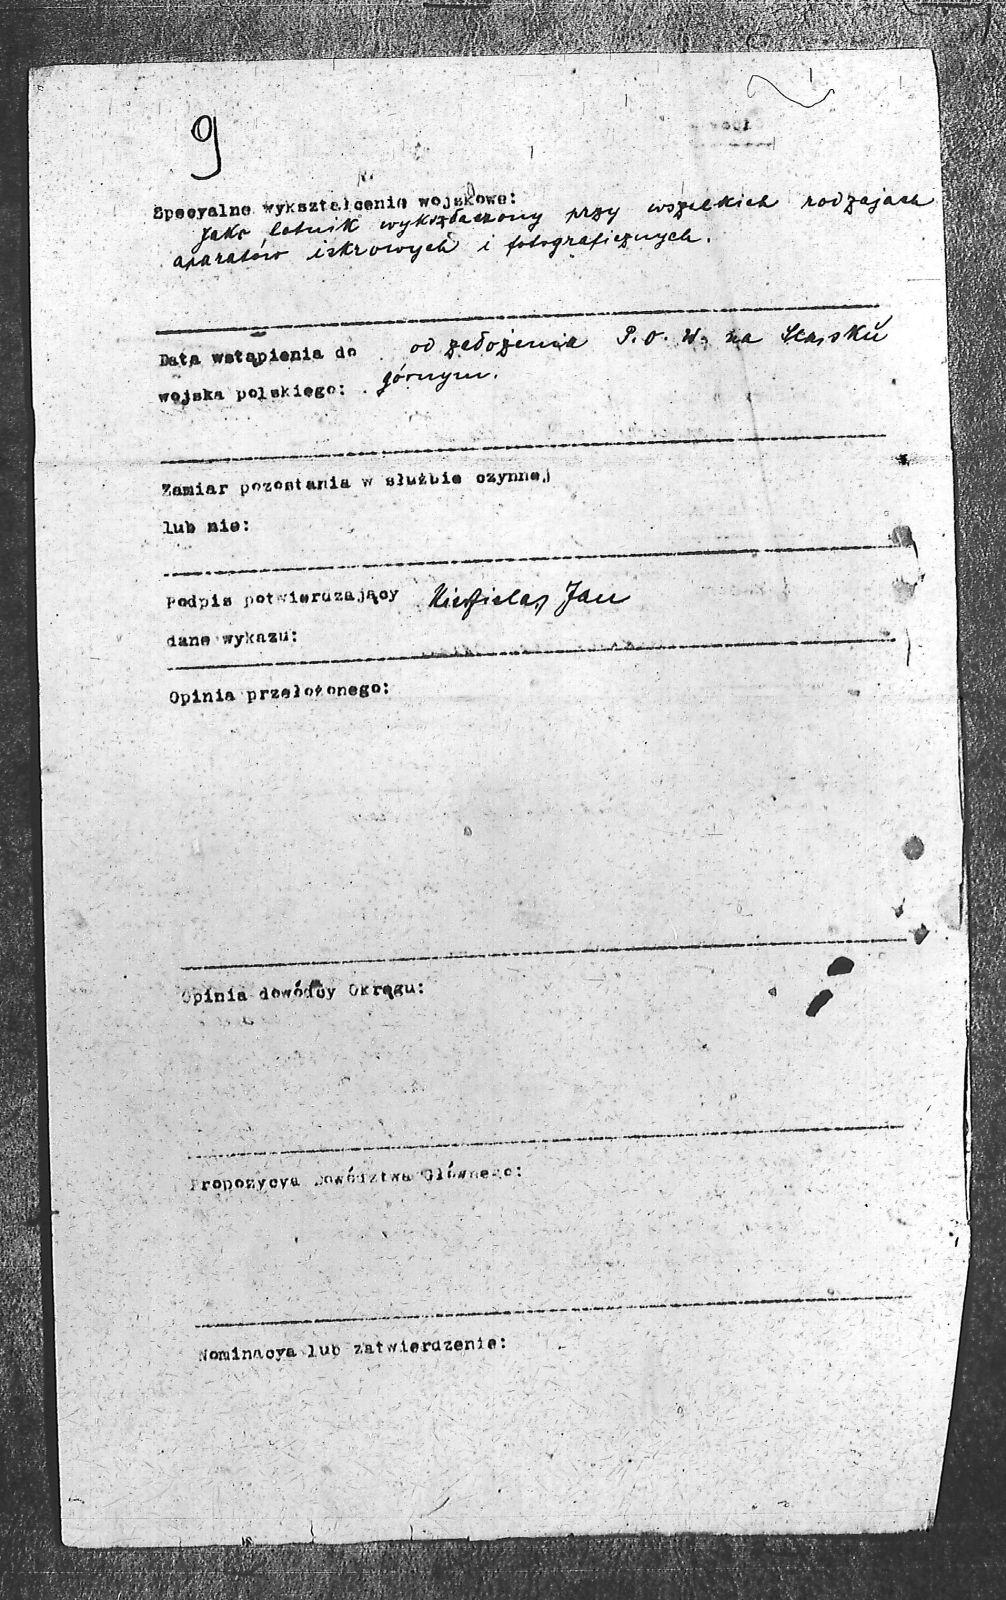 9
Specyalne wykształcenie wojskowe:
Jako lotnik wykształczony przy wszelkich rodzajach
aparatów iskrowych i fotograficznych.
Data wstąpienia do od założenia P.O.W. na Sląsku
wojska polskiego: górnym.
Zamiar pozostania w służbie czynnej
lub nie:
Podpis potwierdzający Jan
dane wykazu:
Opinia przełożonego:
Opinia dowódcy Okręgu:
Propozycya Dowództwa Głównego:
Nominacya lub zatwierdzenie: